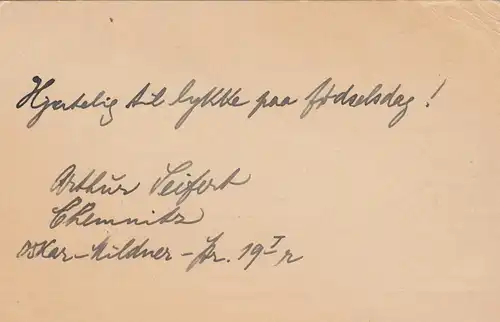 Hjertelig til lykke paa fødselsdag!
Arthur Seifert
Chemnitz
Oskar-Mildner-Str. 19 I r